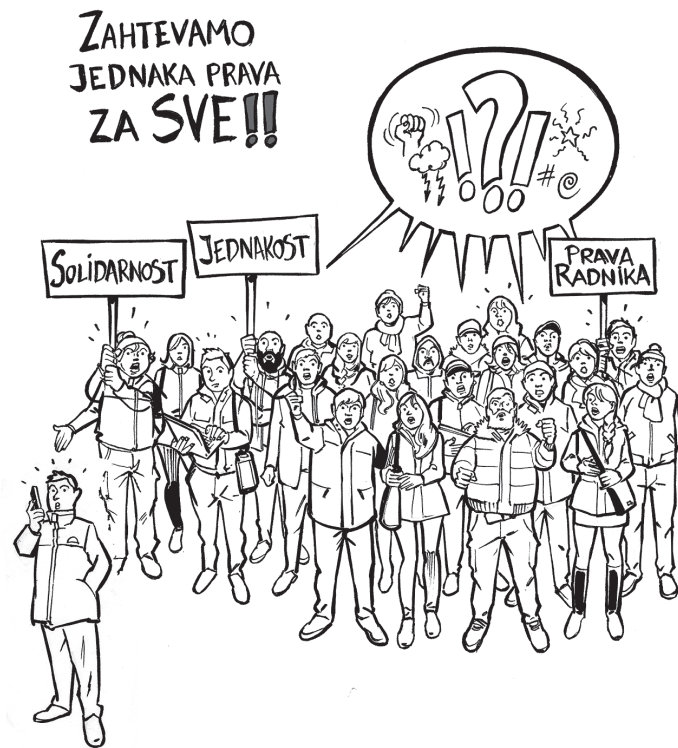 ZAHTEVAMO
JEDNAKA PRAVA
ZA SVE!!
!?!
#@
SOLIDARNOST
JEDNAKOST
PRAVA
RADNIKA